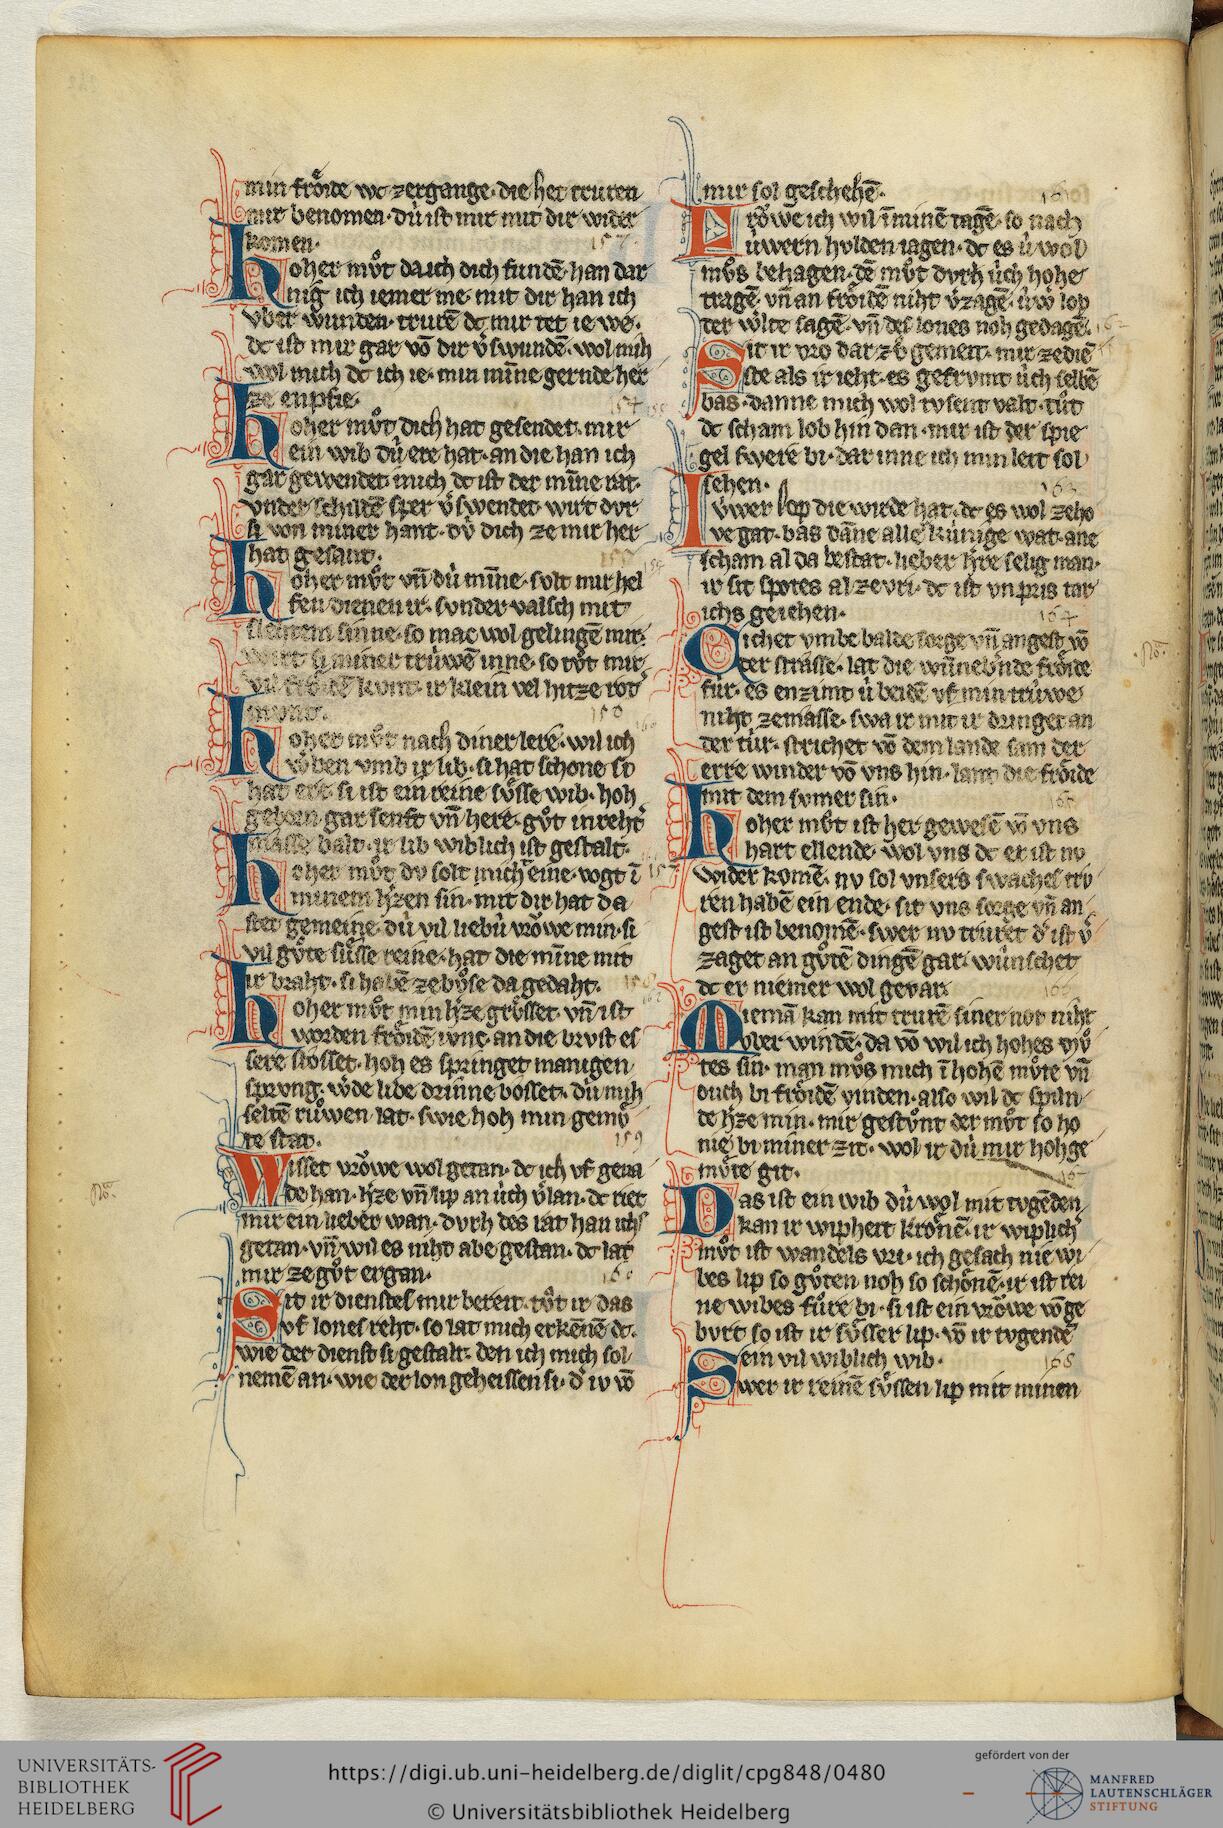 min froͤide wc zergange. die het truren
mir benomen. dú ist mir mit dir wider
komen.
Hoher muͦt da ich dich fundē. han dar
núg ich iemer me. mit dir han ich
vber wunden. trurē dc mir tet ie we.
dc ist mir gar vō dir v̓swundē. wol mih
wol mich dc ich ie. min mīne gernde her
ze enpfie.
Hoher muͦt dich hat gesendet. mir
ein wib dú ere hat. an die han ich
gar gewendet mich dc ist der mīne rat.
vnder schiltē sper v̓swendet. wirt dvr
si von miner hant. dú dich ze mir her
hat gesant.
Hoher muͦt vn̄ dú mīne. solt mir hel
fen dienen ir. svnder valsch mit
sietem sinne. so mac wol gelingē mir.
wirt si miner trúwē inne. so tuͦt mir
vil froͤidē kunt. ir klein vel hitze rot
munt.
Hoher muͦt nach diner lere. wil ich
werben vmb ir lib. si hat schone si
hat ere. si ist ein reine suͤsse wib. hoh
geborn gar senft vn̄ here. guͦt in reht
masse balt. ir lib wiblich ist gestalt.
Hoher muͦt dv solt mich eine. vogt ī
minem h̓zen sin. mit dir hat da
stet gemeine. dú vil liebú vroͮwe min. si
vil guͦte suͤsse reine. hat die mīne mit
ir braht. si habē ze boͤse da gedaht.
Hoher muͦt min h̓ze groͤsset. vn̄ ist
worden froͤidē vnt. an die brvst es
sere stosset. hoh es springet manigen
sprvng. v̓de libe drinne bosset. dú mih
seltē ruͦwen lat. swie hoh min gemuͤ
te stat.
Wisset vroͮwe wol getan. dc ich vf gena
de han. h̓ze vn̄ lip an úch v̓lan. dc riet
mir ein lieber wan. dvrh des rat han ichs
getan. vn̄ wil es niht abe gestan. dc lat
mir ze guͦt ergan.
Sit ir dienstes mir bereit. tuͦt ir das
vf lones reht. so lat mich erkēnē dc.
wie der dienst si gestalt. den ich mich sol
nemē an. wie der lon geheissen si. d̓ iv vō
mir sol geschehē.
Froͮwe ich wil ī minē tagē. so nach
úwern hvlden iagen. dc es ú wol
muͦs behagen. dē muͦt dvrh úch hohe
tragē. vn̄ an froͤidē niht v̓zagē. úw lop
der w̓lte sagē. vn̄ des lones noh gedagē.
Sit ir vro dar zv̓ gemeit. mir ze diē
ste als ir ieht. es gefrvmt úch selbē
bas. danne mich wol tvsent valt. tuͦt
dc scham lob hin dan. mir ist der spie
gel swere bi. dar inne ich min leit sol
sehen.
Iv̓wer lop die wirde hat. dc es wol ze ho
ve gat. bas dāne alle kúnige wat. ane
scham al da bestat. lieber h̓re selig man.
ir sit spotes al ze vri. dc ist vnpris tar
ichs geiehen.
Wichet vmbe balde sorge vn̄ angest vō
der strasse. lat die wn̄nebernde froͤide
fúr. es enzimt ú beidē vf min trúwe
niht ze masse. swa ir mit ir dringet an
der túr. strichet vō dem lande sam der
erre winder vō vns hin. lant die froͤide
mit dem svmer sin.
Hoher muͦt ist her gewesē vō vns
hart ellende. wol vns dc er ist nv
wider komē. nv sol vnsers swaches trv
ren habē ein ende. sit vns sorge vn̄ an
gest ist benomē. swer nv truret d̓ ist v̓
zaget an guͦtē dingē gar. wúnschet
dc er niemer wol gevar.
Niemā kan mit trurē siner not niht
vber windē. da vō wil ich hohes mvͦ
tes sin. man muͦs mich ī hohē muͦte vn̄
ouch bi froͤidē vinden. also wil dc spiln
de h̓ze min. mir gestuͦnt der muͦt so ho
nie bi miner zit. wol ir dú mir hohge
muͤte git.
Das ist ein wib dú wol mit tvgēden
kan ir wipheit kroͤnē. ir wiplich
muͦt ist wandels vri. ich gesach nie wi
bes lip so guͦten noh so schoͤnē. ir ist rei
ne wibes fuͦre bi. si ist ein vroͮwe vō ge
bvrt so ist ir suͤsser lip. vō ir tvgende
ein vil wiblich wib.
Swer ir reinē suͤssen lip mit minen
UNIVERSITÄTS-
BIBLIOTHEK
HEIDELBERG
https://digi.ub.uni-heidelberg.de/diglit/cpg848/0480
© Universitätsbibliothek Heidelberg
gefördert von der
MANFRED
LAUTENSCHLÄGER
STIFTUNG